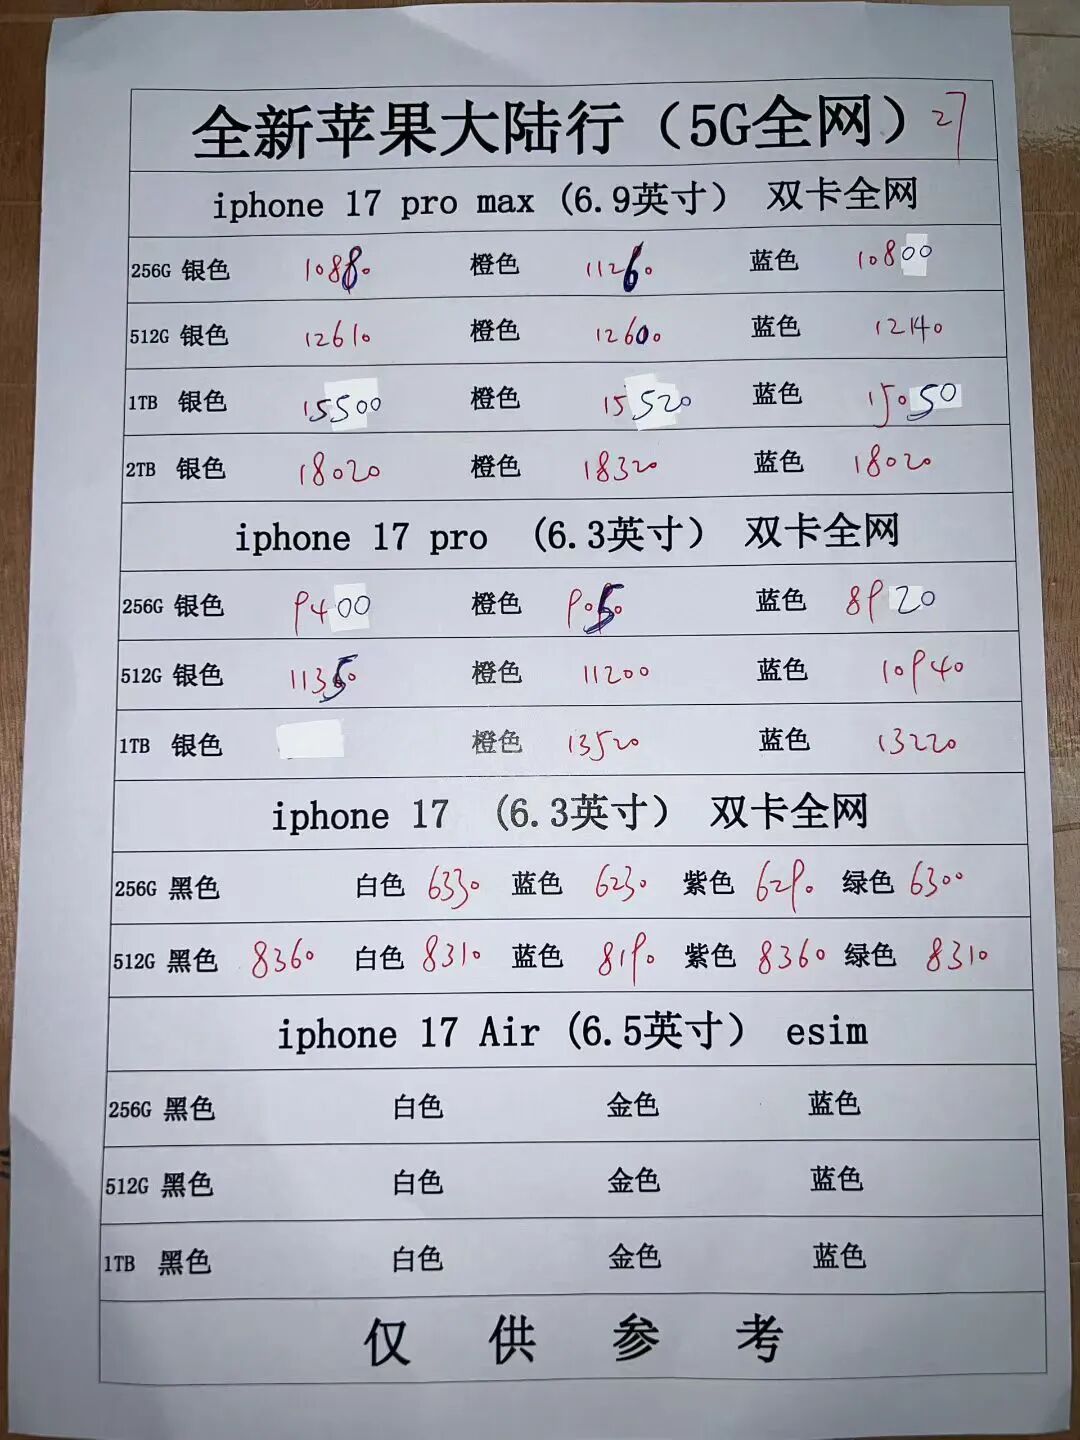 全新苹果大陆行（5G全网）27
iphone 17 pro max (6.9英寸） 双卡全网
256G 银色 10880 橙色 11260 蓝色 10800
512G 银色 12610 橙色 12600 蓝色 12140
1TB 银色 15500 橙色 15520 蓝色 15050
2TB 银色 18020 橙色 18320 蓝色 18020
iphone 17 pro (6.3英寸） 双卡全网
256G 银色 9400 橙色 9050 蓝色 8920
512G 银色 11350 橙色 11200 蓝色 10940
1TB 银色 橙色 13520 蓝色 13220
iphone 17 (6.3英寸） 双卡全网
256G 黑色 白色 6330 蓝色 6230 紫色 6290 绿色 6300
512G 黑色 8360 白色 8310 蓝色 8190 紫色 8360 绿色 8310
iphone 17 Air (6.5英寸） esim
256G 黑色 白色 金色 蓝色
512G 黑色 白色 金色 蓝色
1TB 黑色 白色 金色 蓝色
仅 供 参 考